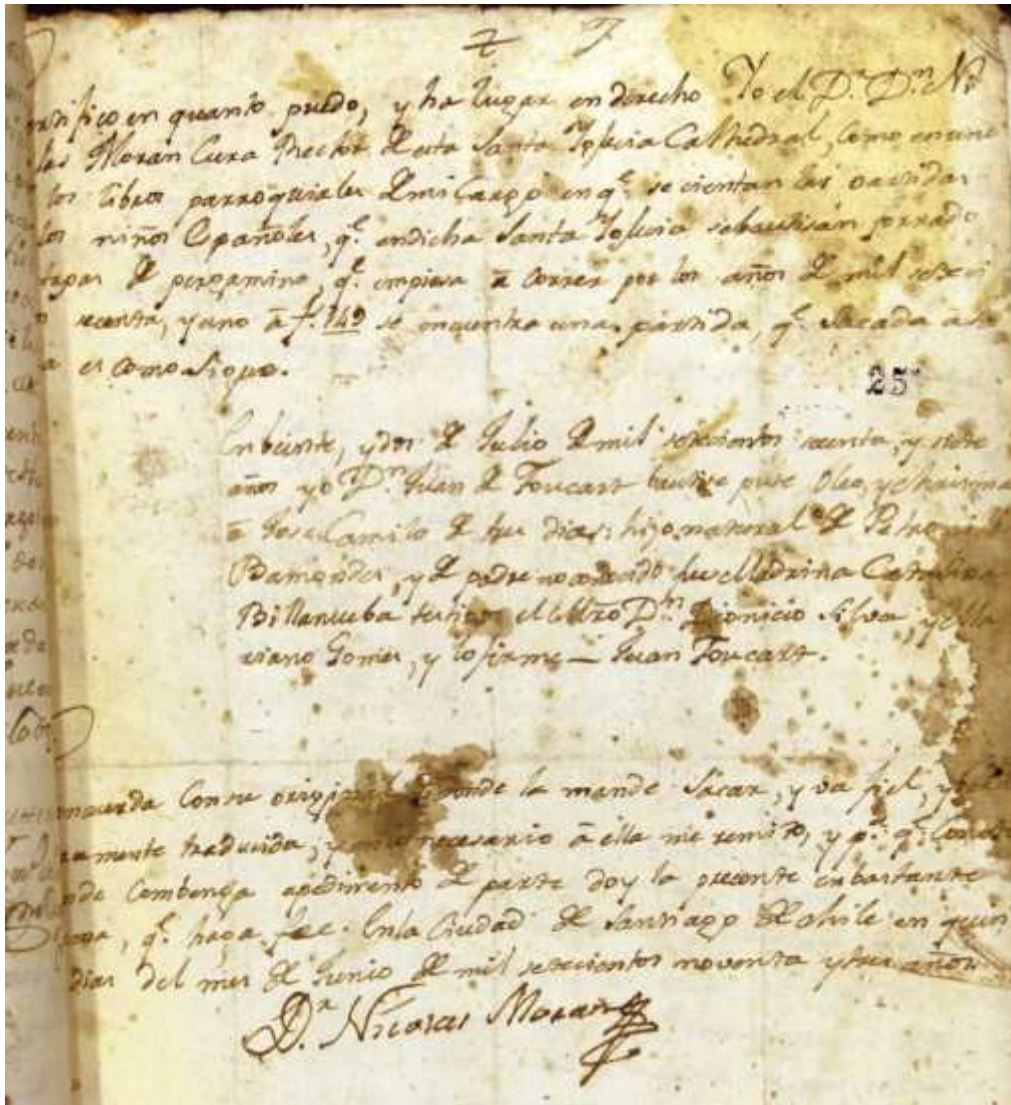 7
en quanto puedo, y ha lugar en derecho Yo el D.r D.n Ni
las Moran Cura Rector de esta Santa Iglesia Cathedral, como en uno
los libros parroquiales de mi cargo en q.e se cientan las partidas
los niños Españoles, q.e en dicha Santa Iglesia se bautisan forrado
tapas de pergamino, q.e empiesa a correr por los años de mil
secenta, y uno a f. 149 se encuentra una partida, q.e sacada a la
es como sigue.
25
En beinte, y dos de Julio de mil setecientos secenta, y siete
años yo D.n Juan de Foucart bautise puse Oleo, y Chrisma
a Jose Camilo de tres dias: hijo natural de Petro
Bamondes, y de padre no conocido fue Madrina Catalina
Billanueba testigos el Mtro D.n Dionicio Silva, y
viano Gomes, y lo firme — Juan Foucart.
Con su original donde la mande sacar, y va fiel, y
ramente traducida, y en lo necesario a ella me remito, y p.a q.e Conste
donde Combenga a pedimento de parte doy la presente en bastante
forma, q.e haga fee. En la Ciudad de Santiago de Chile en quin
dias del mes de Junio de mil setecientos noventa y tres años
D.r Nicolas Moran